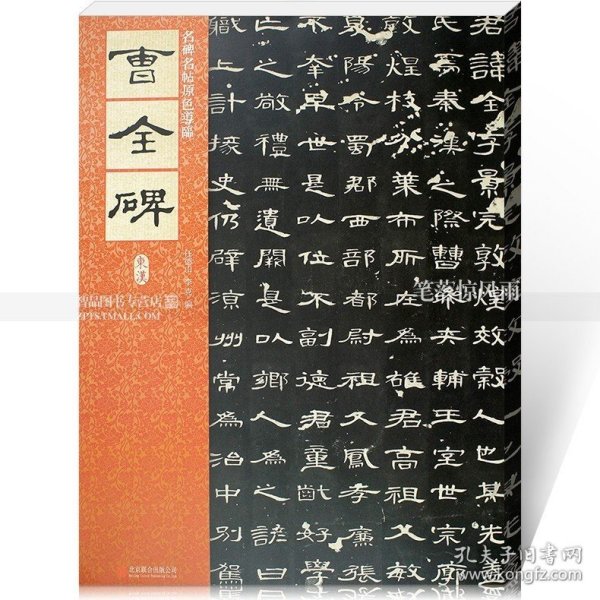 名碑名帖原色導臨
曹全碑
東漢
北京联合出版公司
君諱全字景完敦煌效穀人也其先
氏焉秦漢之際曹參夾輔王室世宗廓
敦煌枝分葉布所在為雄君高祖父敏
夏陽令蜀郡西部都尉祖父鳳孝廉張
不幸早世是以位不副德君童齔好學
亡之敬禮無遺闕是以鄉人為之諺曰
職上計掾史仍辟涼州常為治中別駕
智品图书专营店
ZPTS.TMALL.COM
笔落惊风雨
孔夫子旧书网
www.kongfz.com